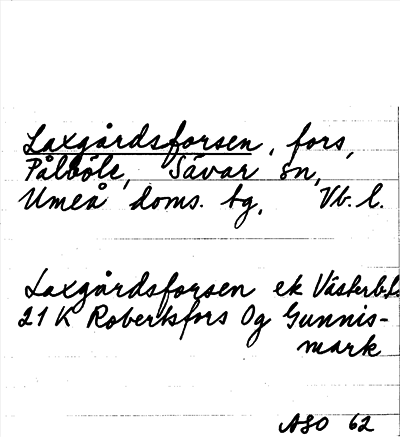 Laxgårdsforsen, fors,
Pålböle, Sävar sn,
Umeå doms. tg, Vb. l.
Laxgårdsforsen ek Västerb.l.
21 K Robertsfors Og Gunnis-
mark
ASO 62